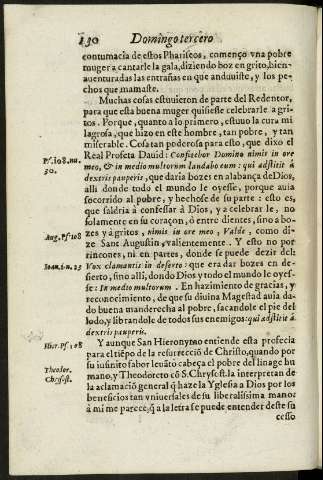 130 Domingo tercero
contumacia de estos Phariseos, començo vna pobre
muger a cantarle la gala, diziendo boz en grito, bien-
auenturadas las entrañas en que anduuiste, y los pe-
chos que mamaste.
Muchas cosas estuuieron de parte del Redentor,
para que esta buena muger quisiesse celebrarle a gri-
tos. Porque, quanto a lo primero, estuuo la cura mi
lagrosa, que hizo en este hombre, tan pobre, y tan
miserable. Cosa tan poderosa para esto, que dixo el
Real Profeta Dauid: Confitebor Domino nimis in ore
meo, & in medio multorum laudabo eum: qui adstitit à
dextris pauperis, que daria bozes en alabança de Dios,
alli donde todo el mundo le oyesse, porque auia
socorrido al pobre, y hechose de su parte: esto es,
que saldria à confessar à Dios, y a celebrarle, no
solamente en su coraçon, ò entre dientes, sino a bo-
zes y à gritos, nimis in ore meo, Valde, como di-
ze Sant Augustin, valientemente. Y esto no por
rincones, ni en partes, donde se puede dezir del:
Vox clamantis in deserto: que era dar bozes en de-
sierto, sino alli, dondo Dios y todo el mundo le oyes-
se: In medio multorum. En hazimiento de gracias, y
reconocimiento, de que su diuina Magestad auia da-
do buena manderecha al pobre, sacandole el pie del
lodo, y librandole de todos sus enemigos: qui adstitit à
dextris pauperis.
Y aunque San Hieronymo entiende esta profecia
para el tiẽpo de la resurrecciõ de Christo, quando por
su infinito sabor leuãtò cabeça el pobre del linage hu
mano, y Theodoreto cõ S. Chrysost. la interpretan de
la aclamaciõ general q̃ haze la Yglesia a Dios por los
beneficios tan vniuersales de su liberalissima mano:
à mi me parece, q̃ a la letra se puede entender deste su
cesso
Ps. 108. nu.
30.
Aug. Ps 108
Ioan. 1. n. 23
Hier. Ps. 108
Theodor.
Chrysost.